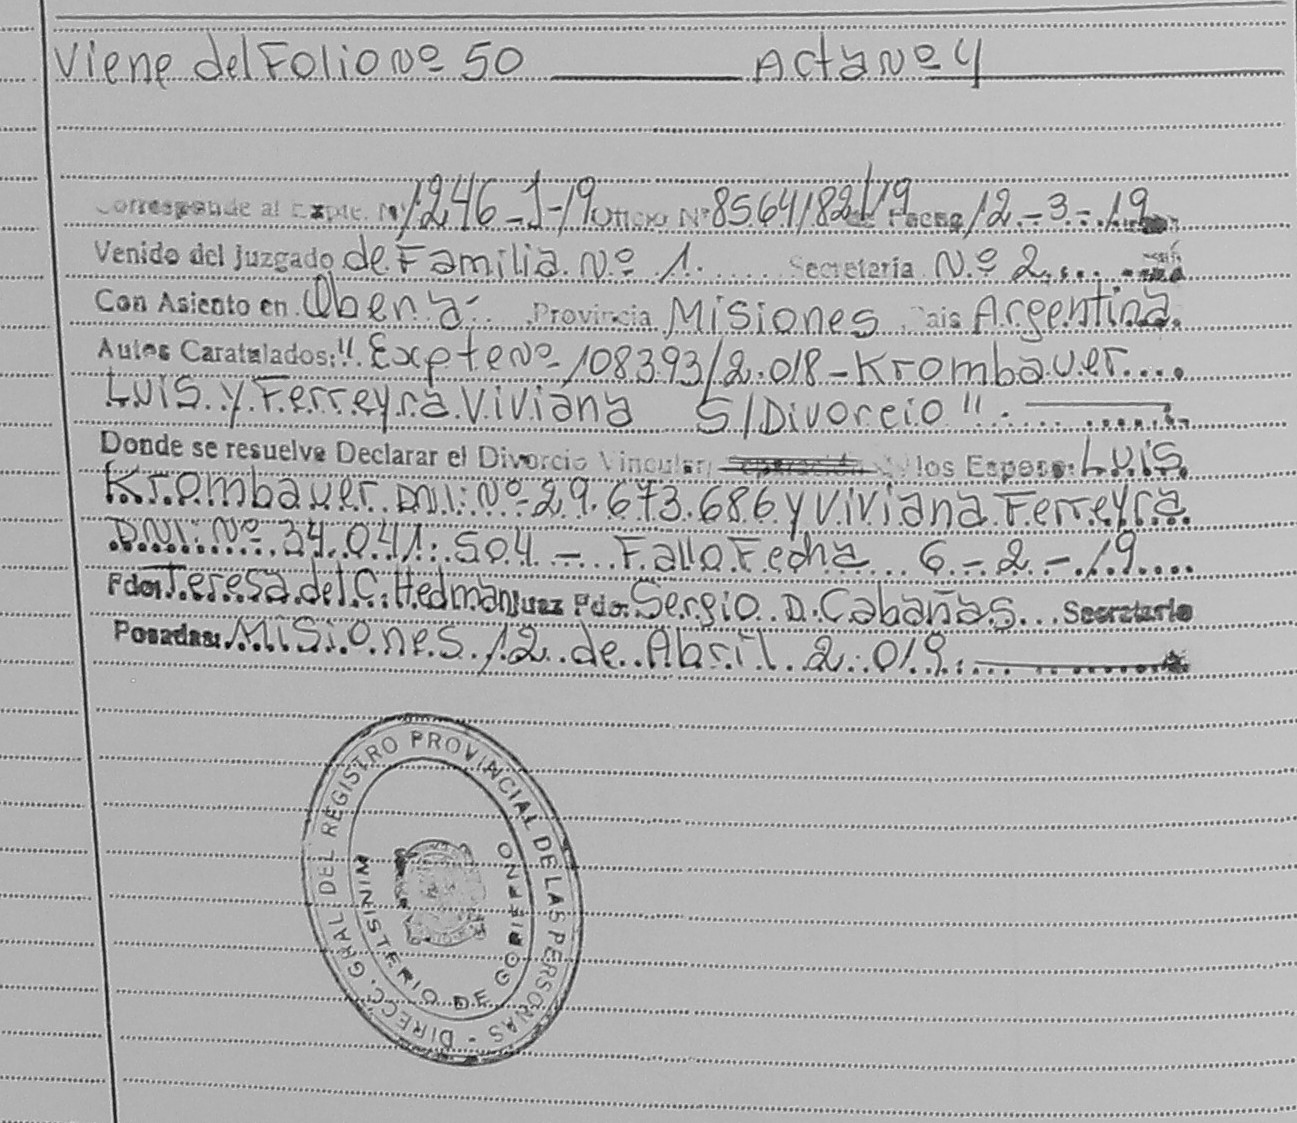 Viene del Folio Nº 50 Acta Nº 4
Corresponde al Expte. Nº 1246-J-19 Oficio Nº 8564182/19 de Fecha 12-3-19
Venido del Juzgado de Familia Nº 1. Secretaría Nº 2
Con Asiento en Obera- Provincia Misiones Pais Argentina.
Autos Caratulados: "Expte Nº 108393/2.018-Krombauer
Luis y Ferreyra Viviana S/Divorcio".
Donde se resuelve Declarar el Divorcio Vincular los Esposo: Luis
Krombauer DNI: Nº 29.673.686 y Viviana Ferreyra
DNI: Nº 34.041.504 - Fallo Fecha 6-2-19
Fdo: Teresa del C. Hedman Juez Fdo: Sergio D. Cabañas Secretario
Posadas: Misiones 12 de Abril 2.019
DIRECC. GRAL DEL REGISTRO PROVINCIAL DE LAS PERSONAS -
MINISTERIO DE GOBIERNO